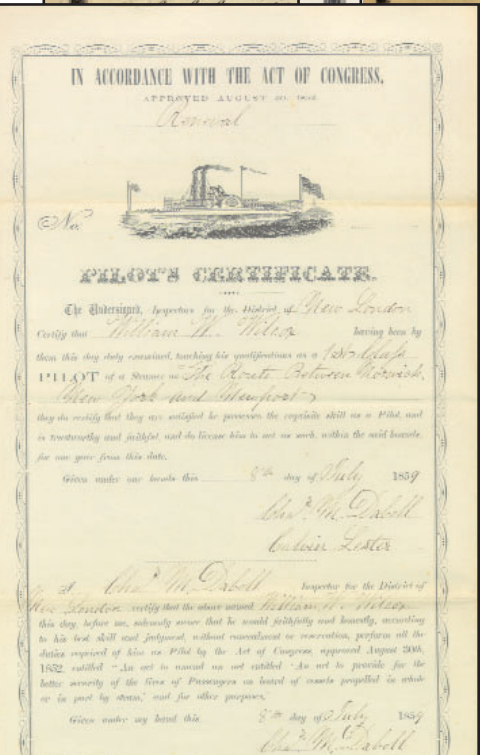 IN ACCORDANCE WITH THE ACT OF CONGRESS,
APPROVED AUGUST 30, 1852
Renewal
No.
PILOT'S CERTIFICATE.
The Undersigned, Inspectors for the District of New London
Certify that William W. Wilcox having been by
them this day duly examined, touching his qualifications as a 1st Class
PILOT of a Steamer on The Route Between Norwich,
New York and Newport
they do certify that they are satisfied he possesses the requisite skill as a Pilot, and
is trustworthy and faithful, and do license him to act as such, within the said bounds,
for one year from this date.
Given under our hands this 8th day of July 1859
Chas. M. Daboll
Calvin Lester
I, Chas. M. Daboll Inspector for the District of
New London certify that the above named William W.
this day, before me, solemnly swore that he would faithfully and honestly, according
to his best skill and judgment, without concealment or reservation, perform all the
duties required of him as Pilot by the Act of Congress, approved August 30th,
1852, entitled "An act to amend an act entitled 'An act to provide for the
better security of the lives of Passengers on board of vessels propelled in whole
or in part by steam,' and for other purposes."
Given under my hand this 8th day of July 1859
Chas. M. Daboll